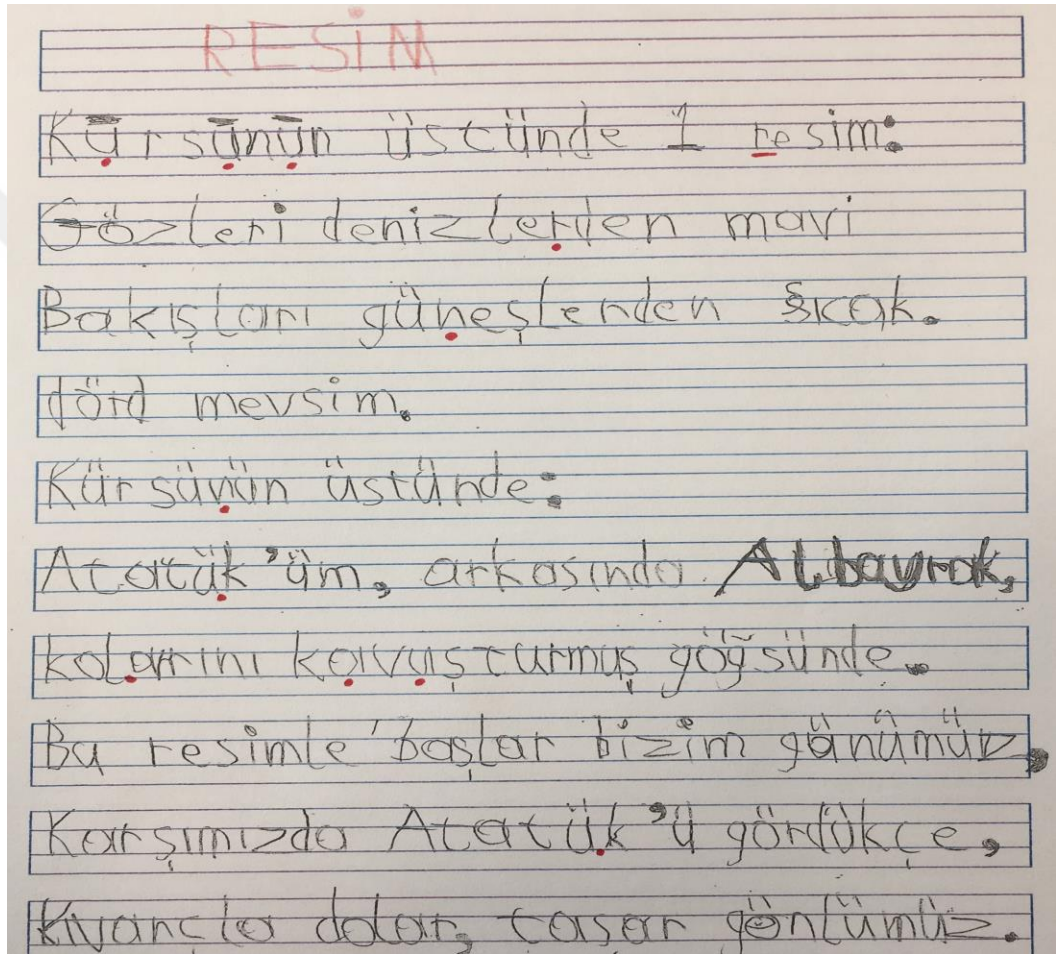 RESİM
Kürsünün üstünde 1 resim:
Gözleri denizlerden mavi
Bakışları güneşlerden sıcak.
dörd mevsim.
Kürsünün üstünde:
Atatük'üm, arkasında Albayrak,
kolarını kavuşturmuş göğsünde.
Bu resimle başlar bizim günümüz,
Karşımızda Atatük'ü gördükçe,
Kıvançla dolar, taşar gönlümüz.